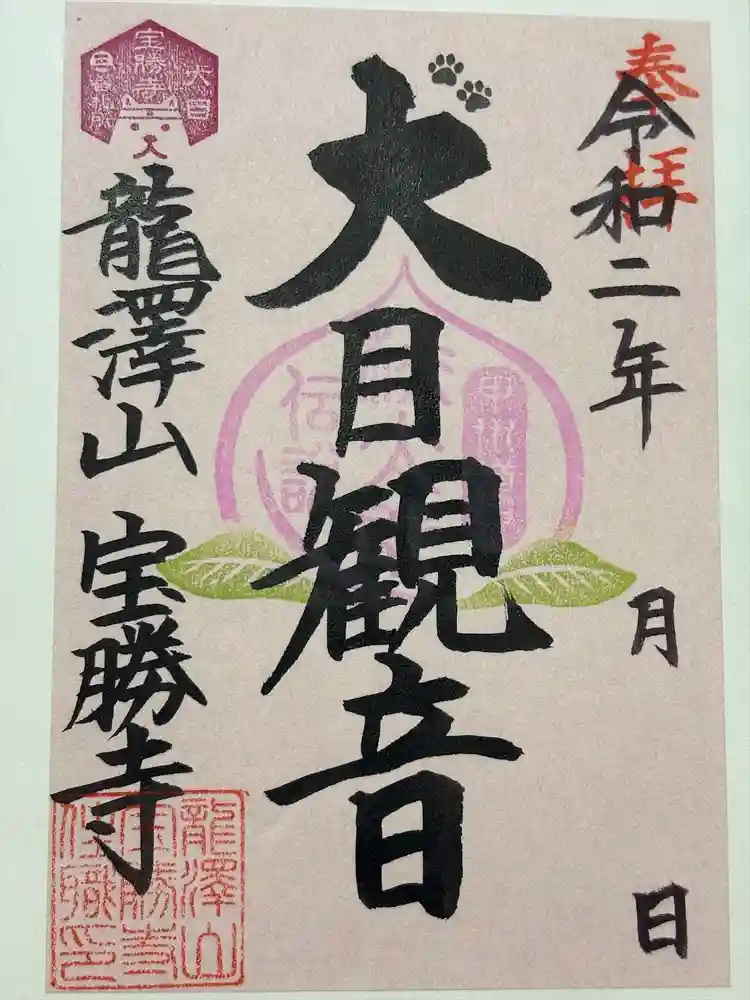 奉拝
令和二年 月 日
犬目観音
伝説
宝勝寺
龍澤山 宝勝寺
龍澤山
宝勝寺
住職印